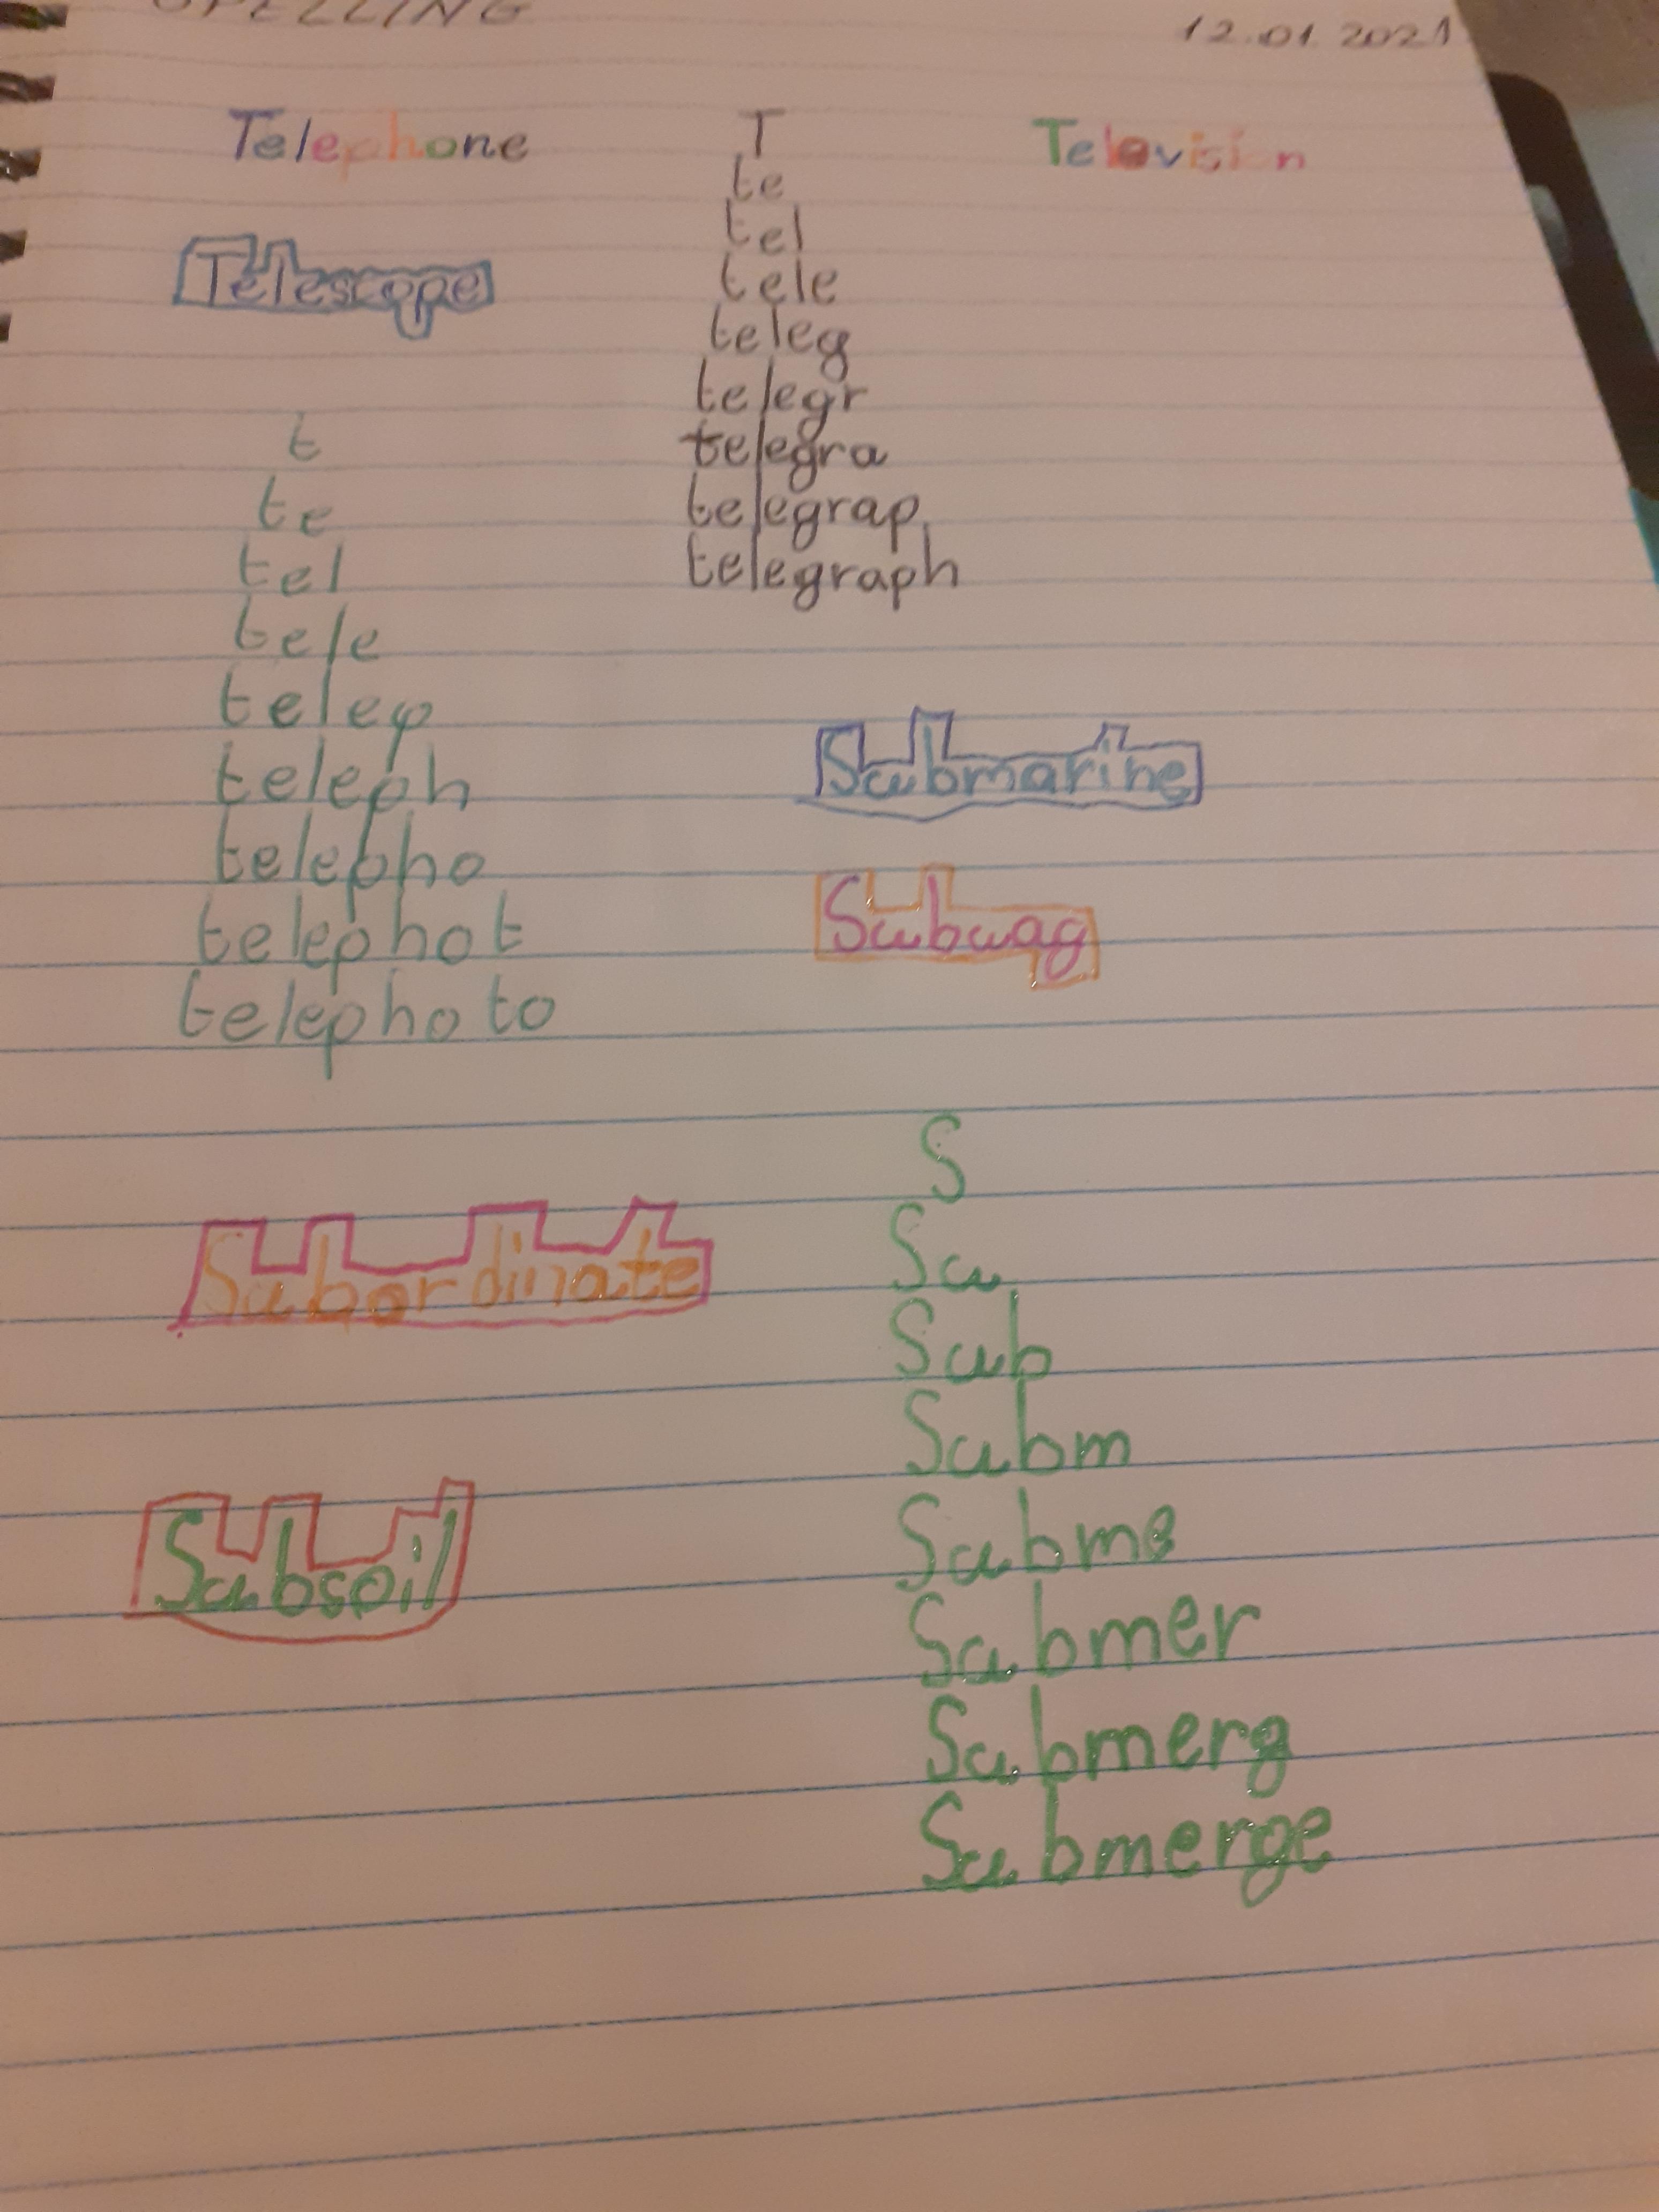 SPELLING
12.01.2021
Telephone
T
Television
te
tel
Telescope
tele
teleg
telegr
telegra
telegrap
telegraph
t
te
tel
tele
telep
teleph
telepho
telephot
telephoto
Submarine
Subwag
S
Su
Sub
Subm
Subme
Submer
Submerg
Submerge
Subordinate
Subsoil